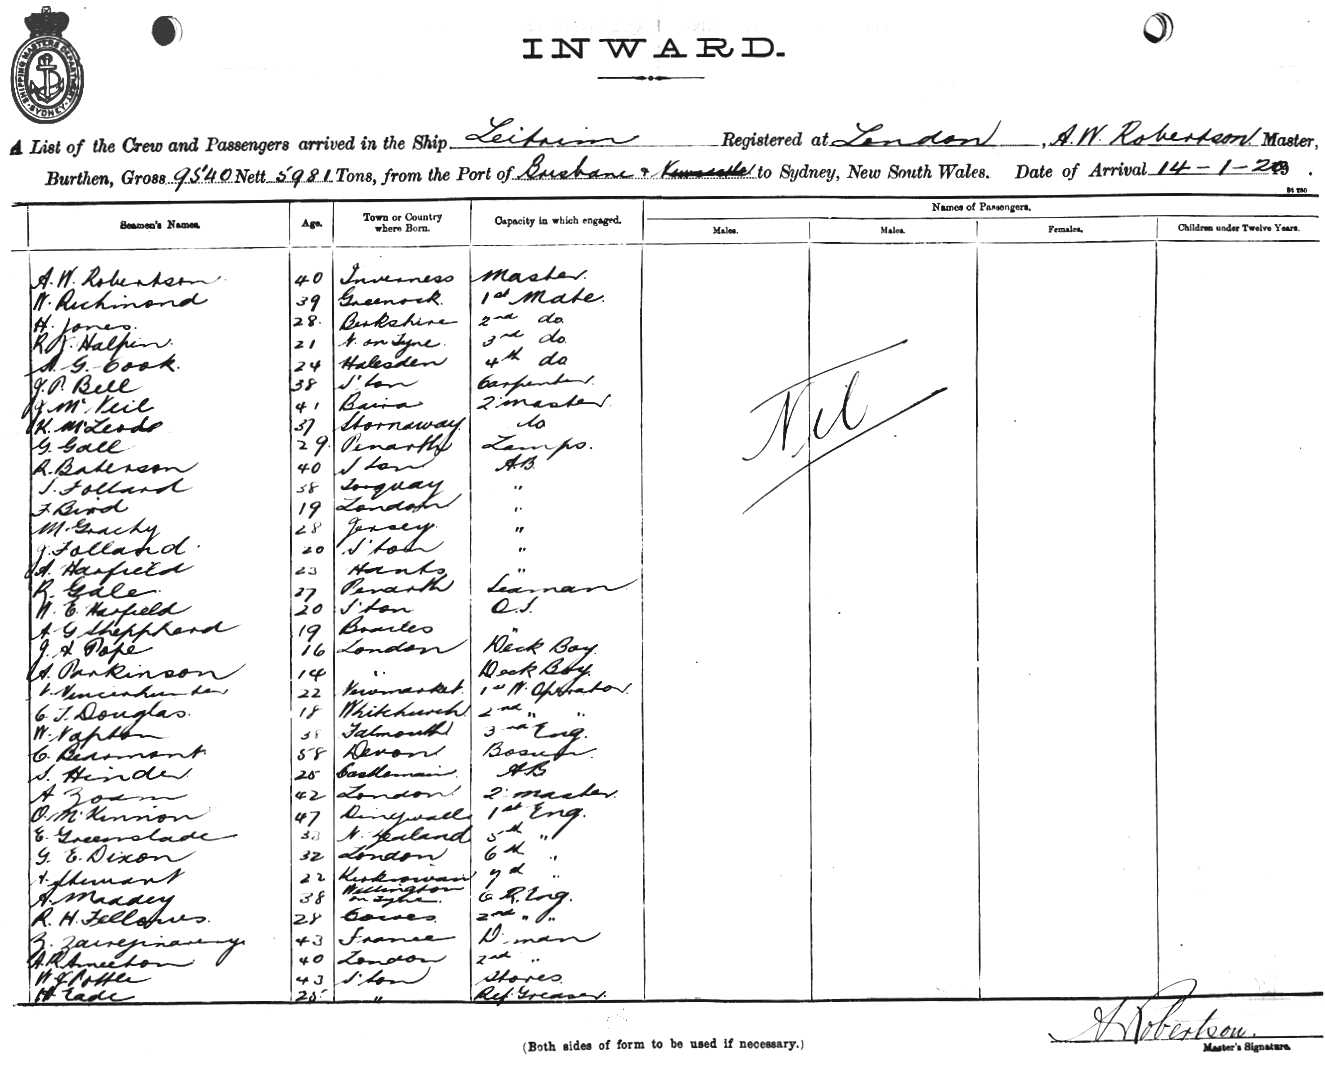 SHIPPING MASTERS DEPARTMENT SYDNEY
INWARD.
A List of the Crew and Passengers arrived in the Ship Leitrim Registered at London, A. W. Robertson Master,
Burthen, Gross 9540 Nett 5981 Tons, from the Port of Brisbane & Newcastle to Sydney, New South Wales. Date of Arrival 14-1-29.
Seamen's Names. Age. Town or Country where Born. Capacity in which engaged. Names of Passengers.
Males. Males. Females. Children under Twelve Years.
A. W. Robertson 40 Inverness Master.
W. Richmond 39 Greenock. 1st Mate.
H. Jones. 28. Berkshire 2nd do
R. Halpin. 21 N. on Tyne. 3rd do
A. G. Cook. 24 Halesden 4th do
J. P. Bell 38 S'ton Carpenter.
J. McNeil 41 Barra 2 master.
K. McLeod 37 Stornaway. do
G. Gall 29. Penarth Lamps.
R. Baterson 40 S'ton A.B
S. Folland 38 Torquay "
F. Bird 19 London "
M. Grachy 28 Jersey. "
J. Folland. 20 S'ton "
A. Harfield 23 Hants "
R. Gale. 27 Penarth Seaman
W. E. Harfield 20 S'ton O.S.
A G Sheppherd 19 "
J. A Pope 16 London Deck Boy.
A. Parkinson 14 " Deck Boy.
22 Newmarket. 1st W. Operator.
C. J. Douglas. 18 Whitchurch 2nd " "
W. 38 Falmouth 3rd Eng.
C. Beaumont 58 Devon Bosun.
S. Hinder 25 Castlemain. AB
A 42 London 2 master.
O. McKinnon 47 Dingwall 1st Eng.
E. Greenslade 33 N. Zealand 5th "
G. E. Dixon 32 London 6th "
Stewart 22 "
A. Maddey 38 Wellington on Tyne. R. Eng.
R. H. Fellowes. 28 Cowes. 2nd " "
43 France D. man
40 London 2nd "
W. J. Pottle 43 S'ton Stores.
H Eade 25 " Ref. Greaser.
Nil
A Robertson.
Master's Signature.
(Both sides of form to be used if necessary.)